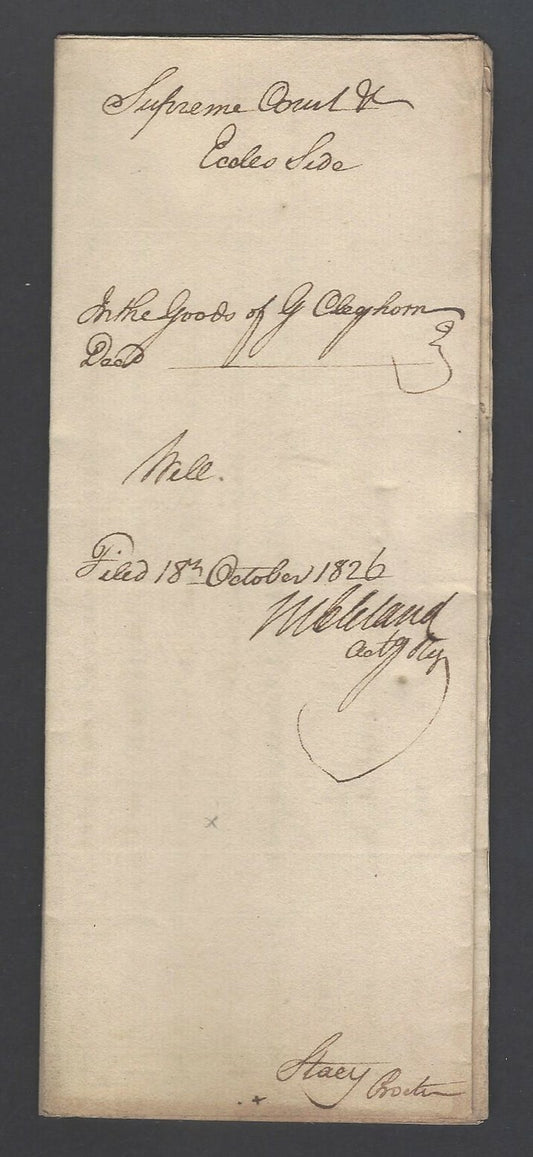 Supreme Court &
Eccles Side
In the Goods of G Cleghorn
Decd
Will.
Filed 18th October 1826
Actg Rg
Stacy Proctor